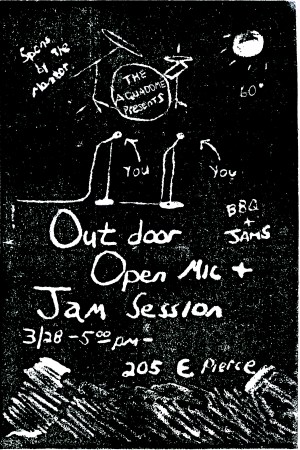 Spons
by The
Monitor
THE
AQUADOME
PRESENTS
60°
You
You
BBQ
+
JAMS
Out door
Open Mic +
Jam Session
3/28 - 5⁰⁰ pm -
205 E Pierce